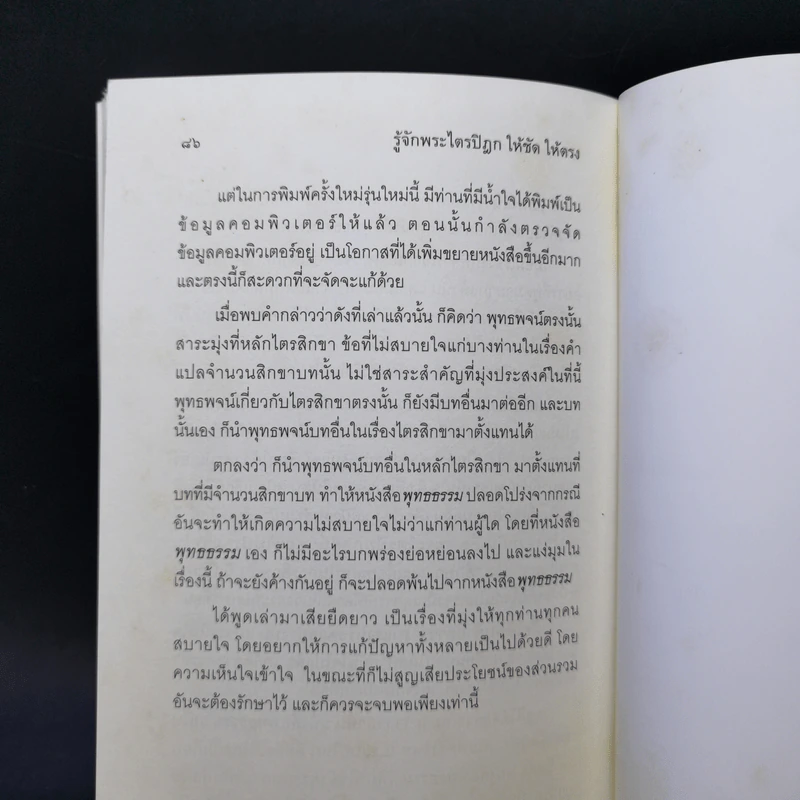 ๘๖ รู้จักพระไตรปิฎก ให้ชัด ให้ตรง
แต่ในการพิมพ์ครั้งใหม่รุ่นใหม่นี้ มีท่านที่มีน้ำใจได้พิมพ์เป็น
ข้อมูลคอมพิวเตอร์ให้แล้ว ตอนนั้นกำลังตรวจจัด
ข้อมูลคอมพิวเตอร์อยู่ เป็นโอกาสที่ได้เพิ่มขยายหนังสือขึ้นอีกมาก
และตรงนี้ก็สะดวกที่จะจัดจะแก้ด้วย
เมื่อพบคำกล่าวว่าดังที่เล่าแล้วนั้น ก็คิดว่า พุทธพจน์ตรงนั้น
สาระมุ่งที่หลักไตรสิกขา ข้อที่ไม่สบายใจแก่บางท่านในเรื่องคำ
แปลจำนวนสิกขาบทนั้น ไม่ใช่สาระสำคัญที่มุ่งประสงค์ในที่นี้
พุทธพจน์เกี่ยวกับไตรสิกขาตรงนั้น ก็ยังมีบทอื่นมาต่ออีก และบท
นั้นเอง ก็นำพุทธพจน์บทอื่นในเรื่องไตรสิกขามาตั้งแทนได้
ตกลงว่า ก็นำพุทธพจน์บทอื่นในหลักไตรสิกขา มาตั้งแทนที่
บทที่มีจำนวนสิกขาบท ทำให้หนังสือพุทธธรรม ปลอดโปร่งจากกรณี
อันจะทำให้เกิดความไม่สบายใจไม่ว่าแก่ท่านผู้ใด โดยที่หนังสือ
พุทธธรรม เอง ก็ไม่มีอะไรบกพร่องย่อหย่อนลงไป และแง่มุมใน
เรื่องนี้ ถ้าจะยังค้างกันอยู่ ก็จะปลอดพ้นไปจากหนังสือพุทธธรรม
ได้พูดเล่ามาเสียยืดยาว เป็นเรื่องที่มุ่งให้ทุกท่านทุกคน
สบายใจ โดยอยากให้การแก้ปัญหาทั้งหลายเป็นไปด้วยดี โดย
ความเห็นใจเข้าใจ ในขณะที่ก็ไม่สูญเสียประโยชน์ของส่วนรวม
อันจะต้องรักษาไว้ และก็ควรจะจบพอเพียงเท่านี้